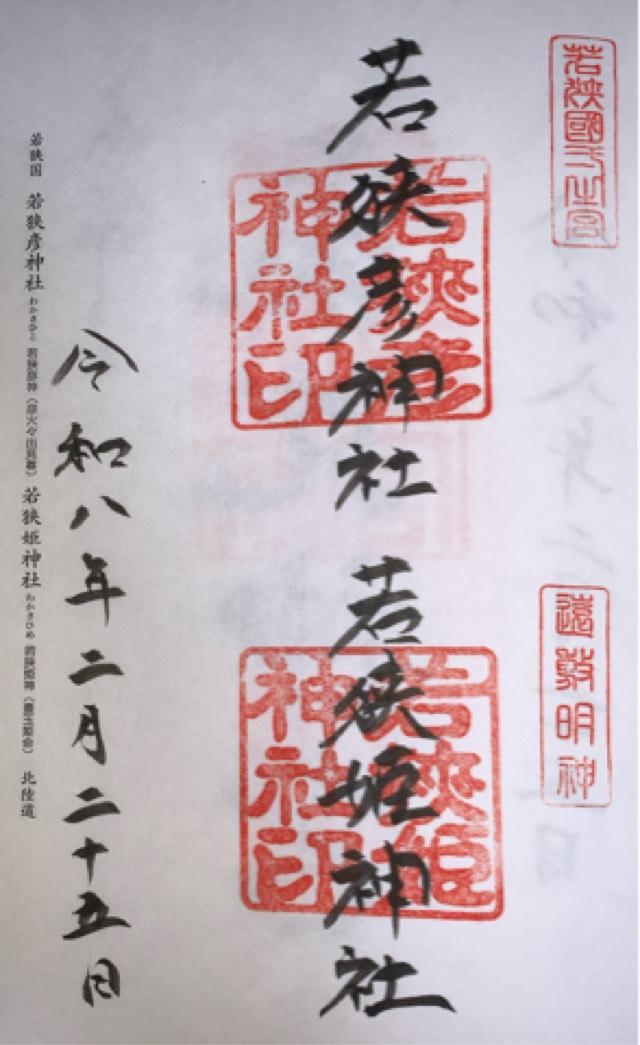 若狭國一之宮
遠敷明神
若狭彦神社
若狭彦神社印
若狭姫神社
若狭姫神社印
令和八年二月二十五日
若狭国 若狭彦神社 わかさひこ 若狭彦神（彦火々出見尊） 若狭姫神社 わかさひめ 若狭姫神（豊玉姫命） 北陸道